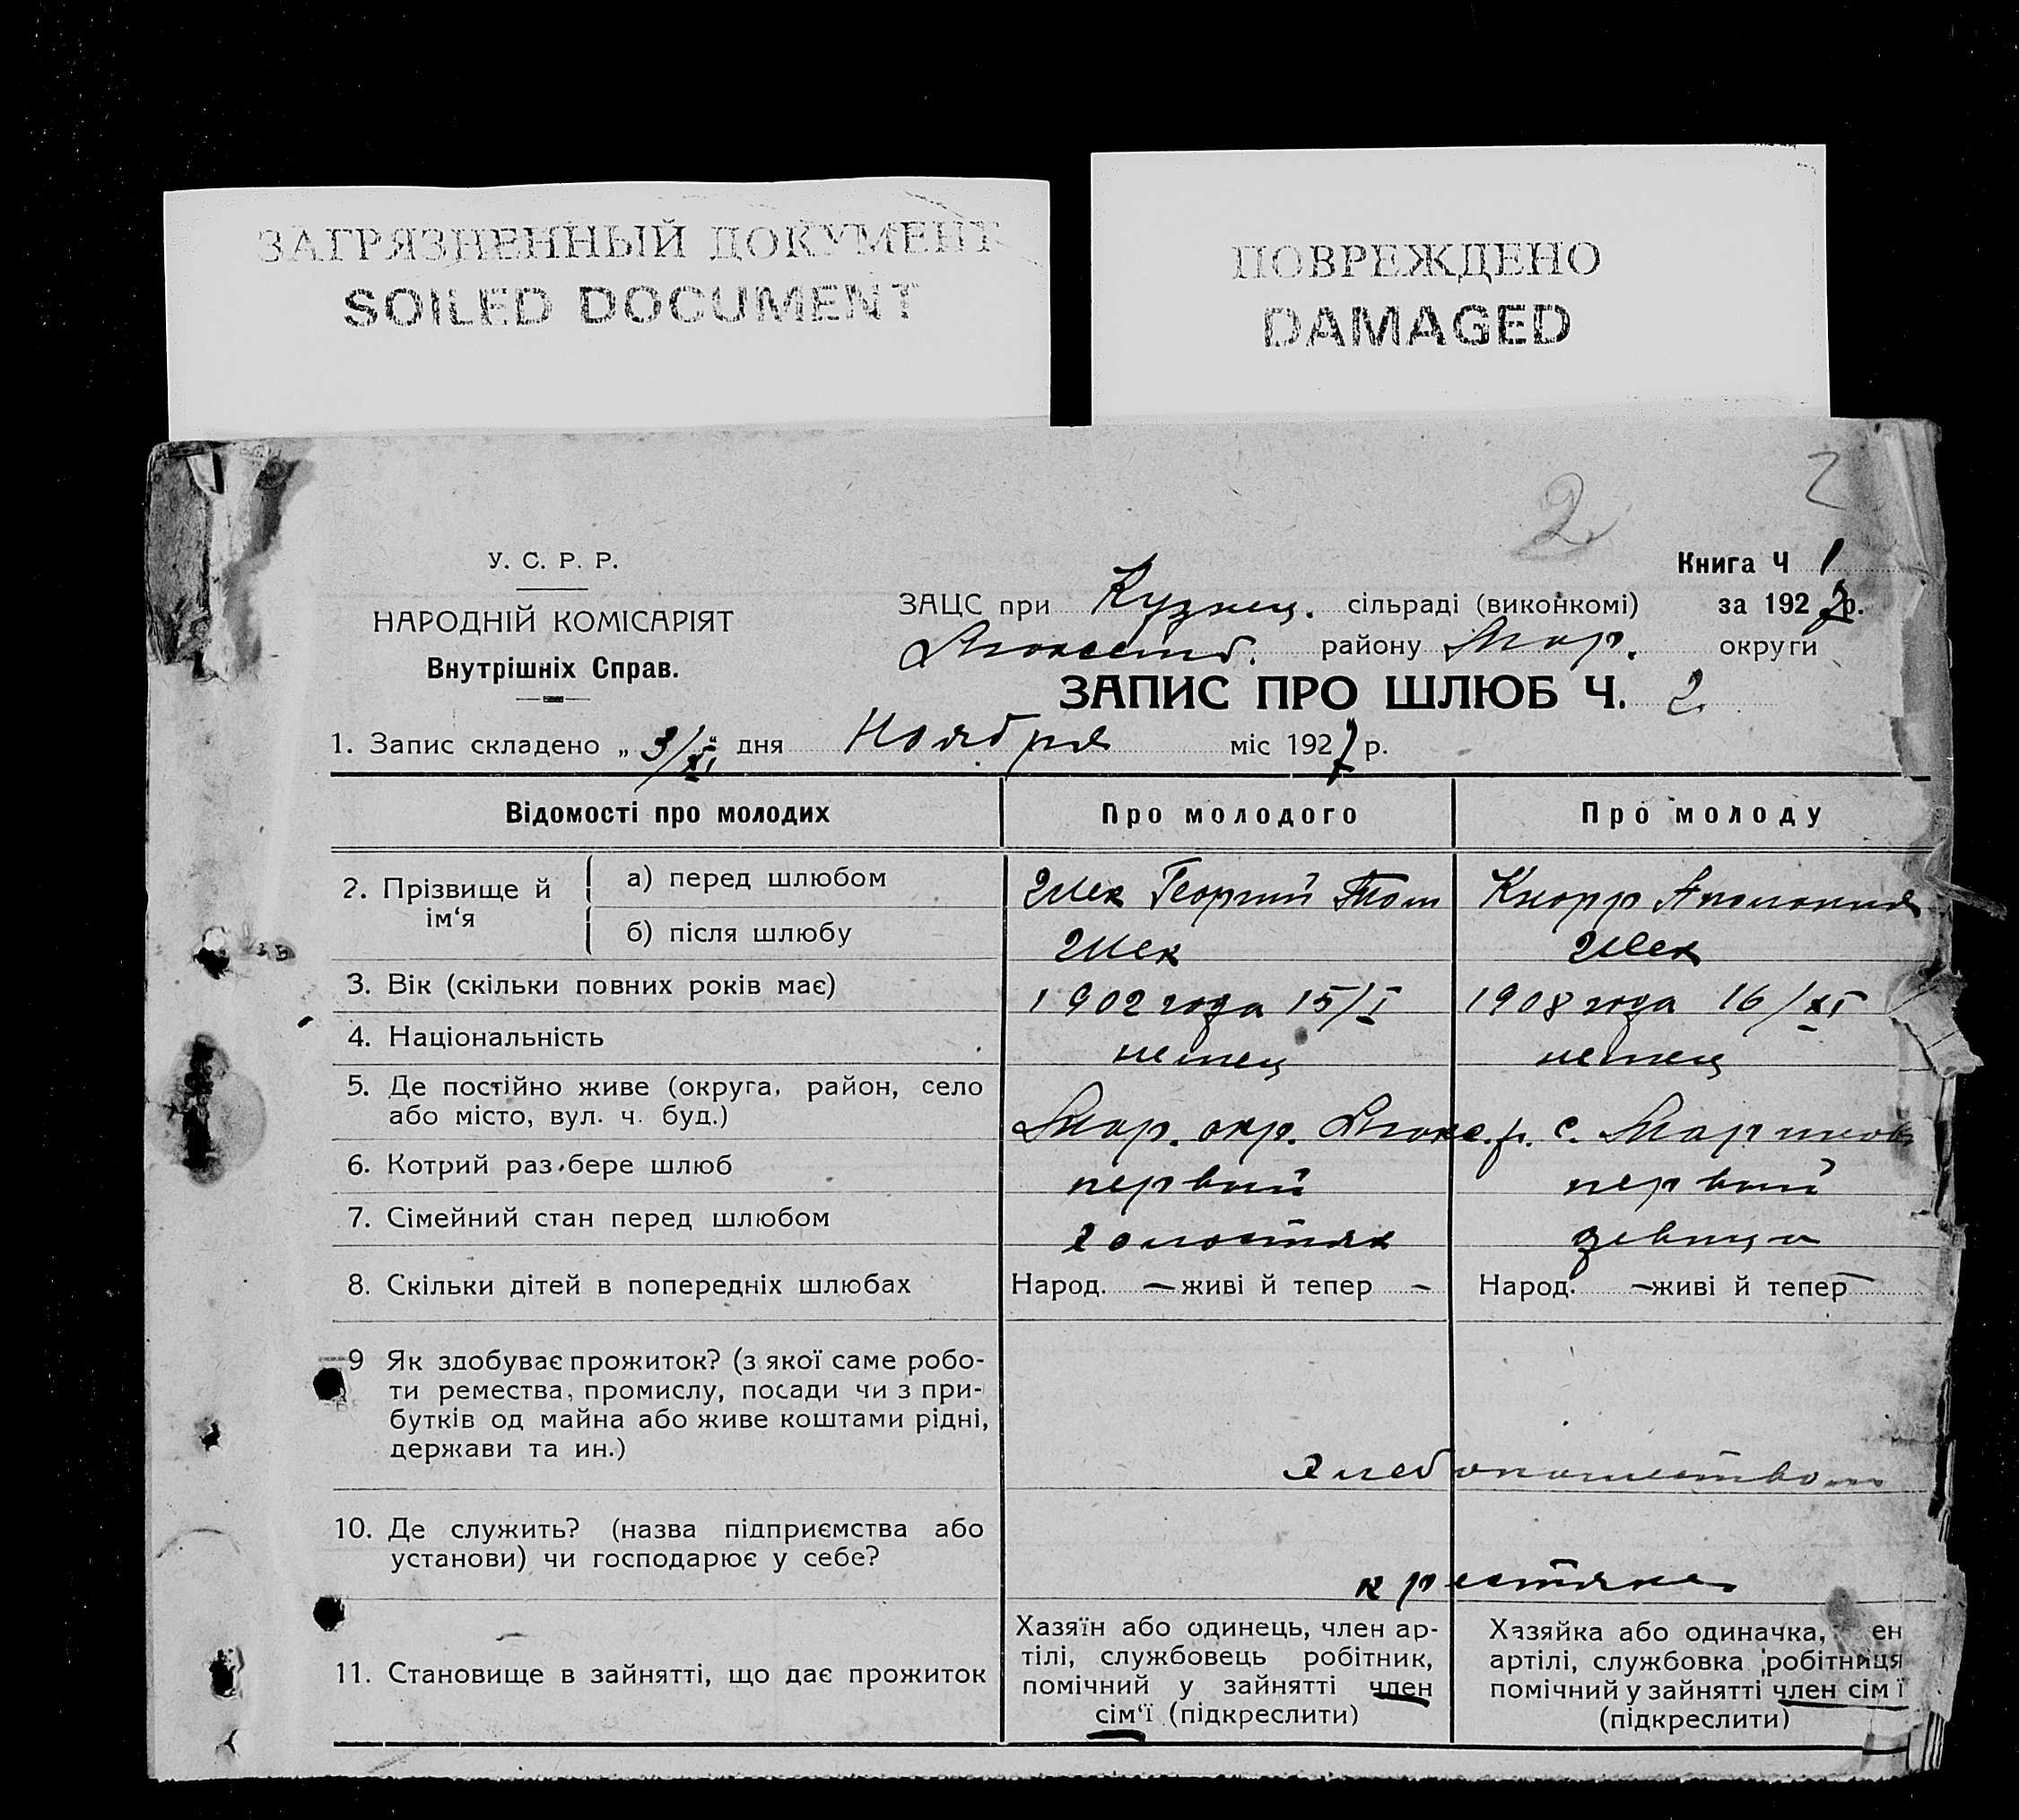 ЗАГРЯЗНЕННЫЙ ДОКУМЕНТ
SOILED DOCUMENT
ПОВРЕЖДЕНО
DAMAGED
2
2
У. С. Р. Р.
НАРОДНІЙ КОМІСАРІЯТ
Внутрішніх Справ.
Книга Ч 1
ЗАЦС при Кузнец. сільраді (виконкомі) за 1927 р.
району Мар. округи
ЗАПИС ПРО ШЛЮБ Ч. 2
1. Запис складено „ 3/XI " дня Ноября міс 1927 р.
Відомості про молодих Про молодого Про молоду
2. Прізвище й ім‘я
а) перед шлюбом Шек Георгий Кнорр Аполония
б) після шлюбу Шек Шек
3. Вік (скільки повних років має) 1902 года 15/I 1908 года 16/XI
4. Національність немец немец
5. Де постійно живе (округа, район, село
або місто, вул. ч. буд.) Мар. окр. р. с.
6. Котрий раз бере шлюб первый первый
7. Сімейний стан перед шлюбом холостяк девица
8. Скільки дітей в попередніх шлюбах Народ. — живі й тепер – Народ. – живі й тепер –
9 Як здобуває прожиток? (з якої саме робо-
ти ремества, промислу, посади чи з при-
бутків од майна або живе коштами рідні,
держави та ин.) хлебопашеством
10. Де служить? (назва підприємства або
установи) чи господарює у себе? крестяне
11. Становище в зайнятті, що дає прожиток
Хазяїн або одинець, член ар-
тілі, службовець робітник,
помічний у зайнятті член
сім‘ї (підкреслити)
Хазяйка або одиначка, ен
артілі, службовка робітниця
помічний у зайнятті член сім ї
(підкреслити)